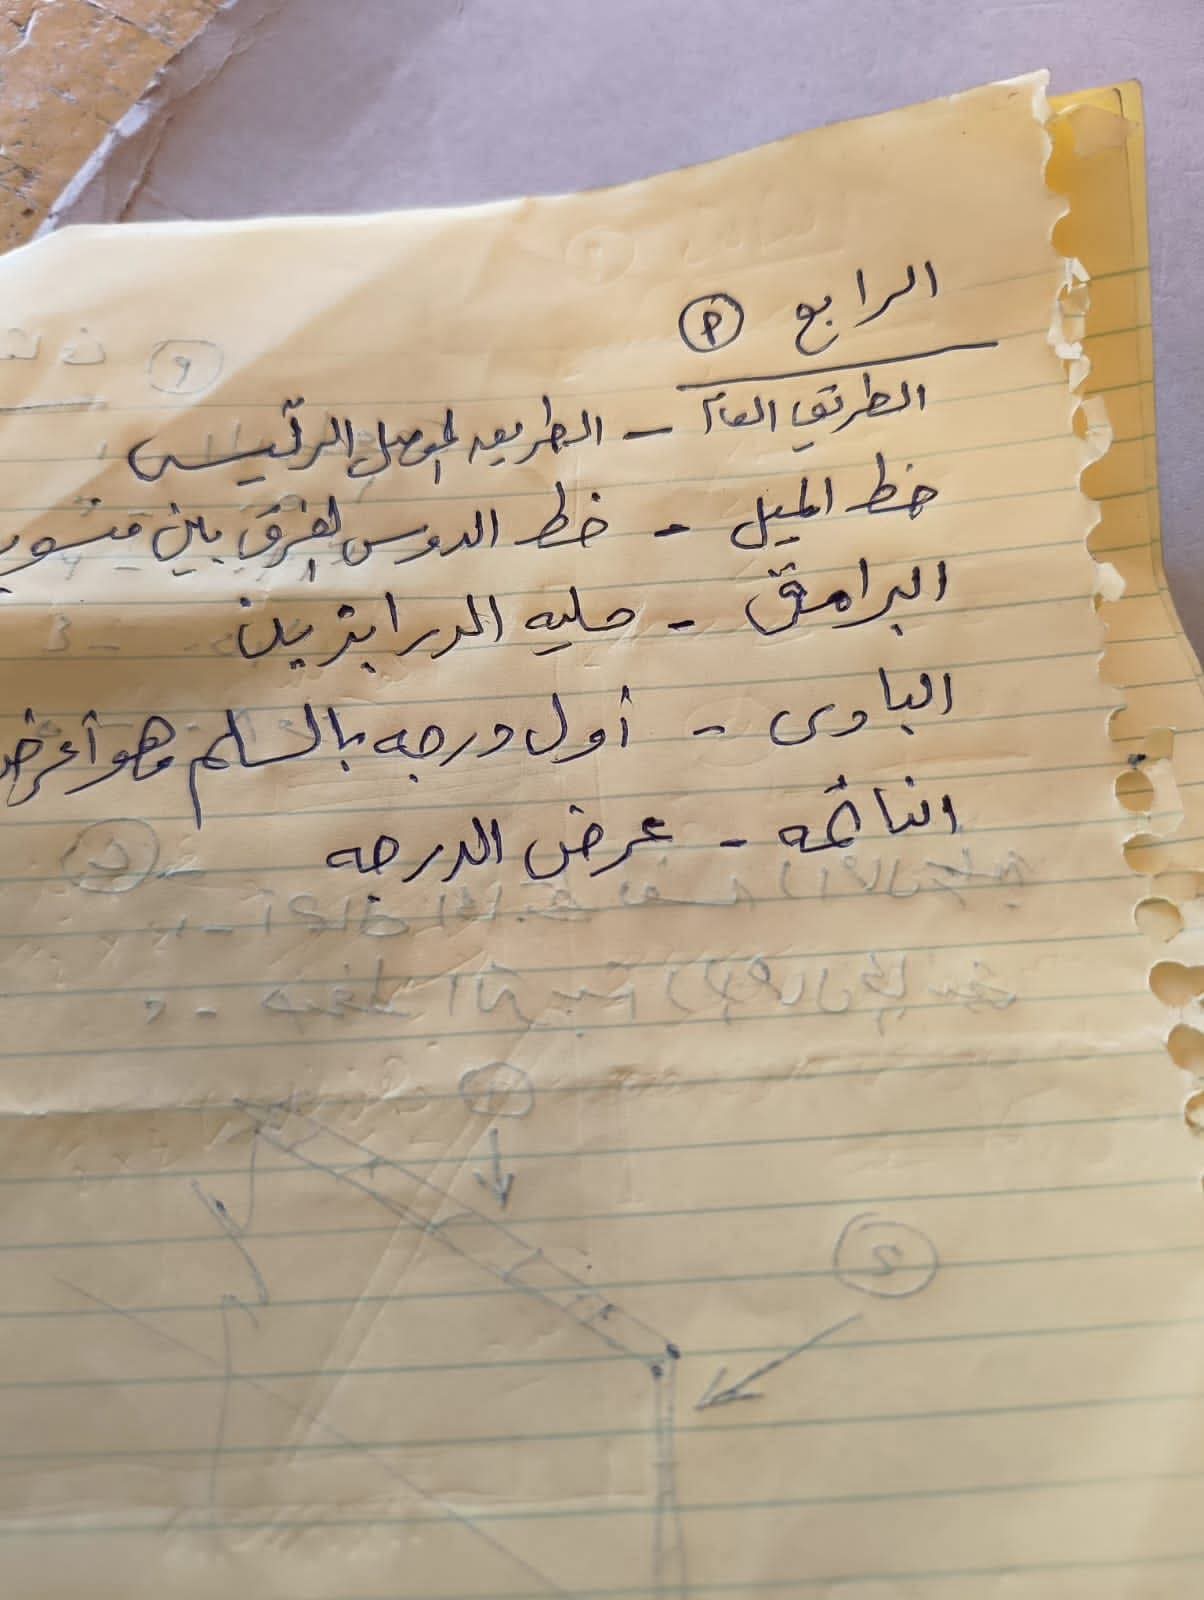 الرابع (P)
الطريق العام - الطريق الموصل الرئيسى
خط الميل - خط الدوس الفرق بين منسوب
البرامق - حليه الدرابزين
البادى - أول درجه بالسلم وهو أعرض
النائمه - عرض الدرجه